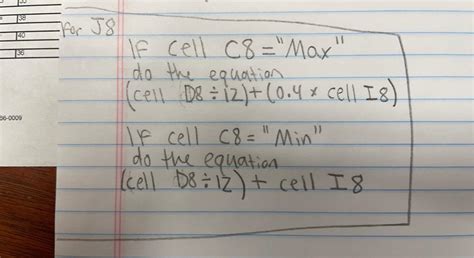 38
40
36
56-0009
For J8
IF cell C8="Max"
do the equation
(cell D8÷12)+(0.4 x cell I8)
IF cell C8="Min"
do the equation
(cell D8÷12) + cell I8